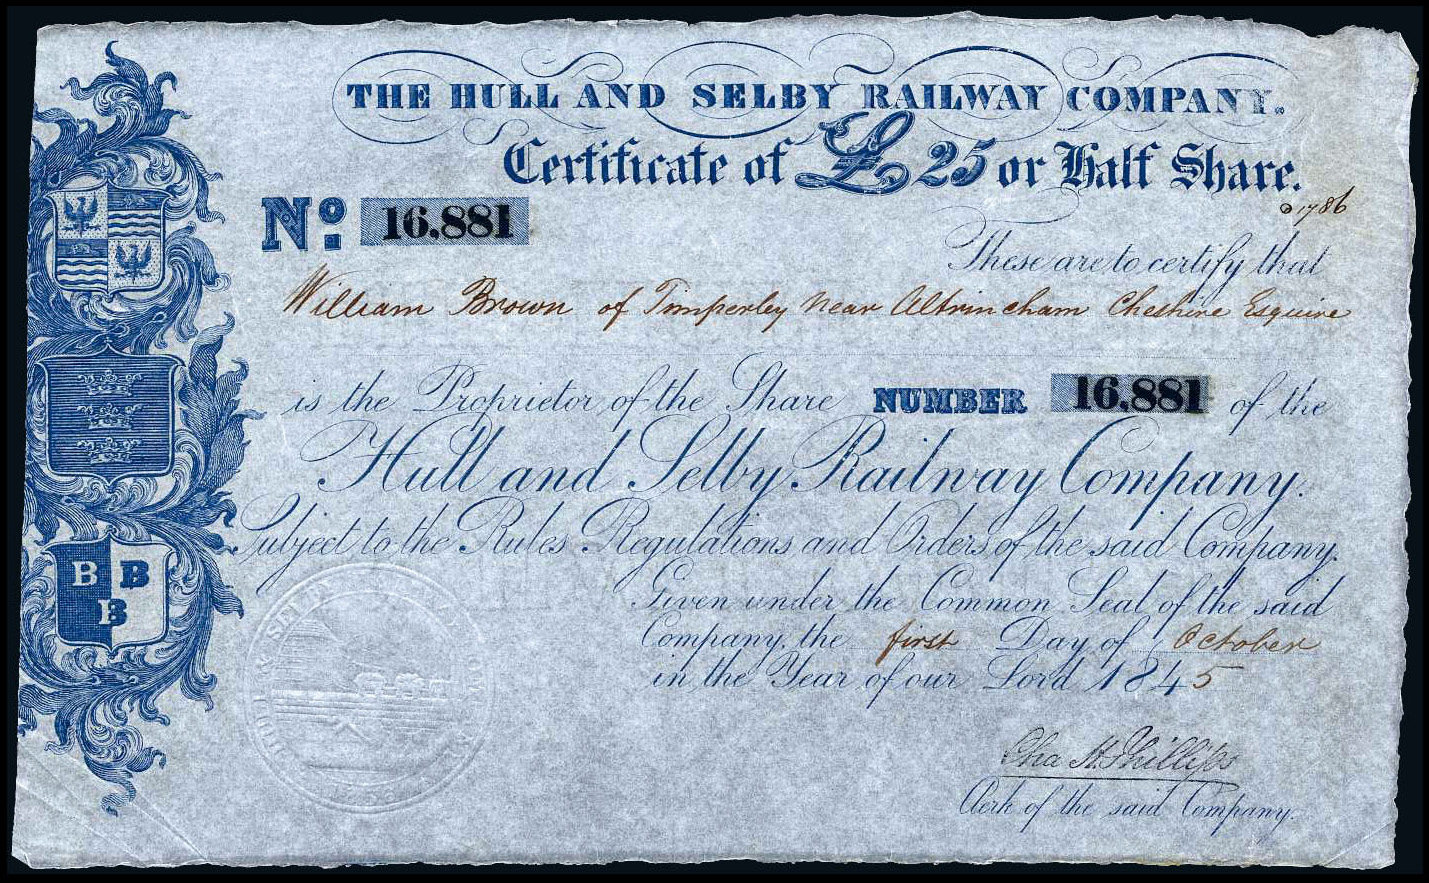 THE HULL AND SELBY RAILWAY COMPANY.
Certificate of £25 or Half Share.
No. 16.881
1786
These are to certify that
William Brown of Timperley Near Altrincham Cheshire Esquire
is the Proprietor of the Share NUMBER 16.881 of the
Hull and Selby Railway Company.
Subject to the Rules Regulations and Orders of the said Company.
Given under the Common Seal of the said
Company, the first Day of October
in the Year of our Lord 1845
Cha H. Phillips
Clerk of the said Company.
B B
B